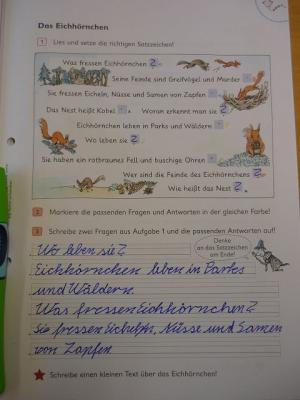 Das Eichhörnchen
1 Lies und setze die richtigen Satzzeichen!
Was fressen Eichhörnchen ?
Seine Feinde sind Greifvögel und Marder .
Sie fressen Eicheln, Nüsse und Samen von Zapfen .
Das Nest heißt Kobel . Woran erkennt man sie ?
Eichhörnchen leben in Parks und Wäldern .
Wo leben sie ?
Sie haben ein rotbraunes Fell und buschige Ohren .
Wer sind die Feinde des Eichhörnchens ?
Wie heißt das Nest ?
2 Markiere die passenden Fragen und Antworten in der gleichen Farbe!
3 Schreibe zwei Fragen aus Aufgabe 1 und die passenden Antworten auf!
Denke an das Satzzeichen am Ende!
Wo leben sie?
Eichhörnchen leben in Parks
und Wäldern.
Was fressen Eichhörnchen?
Sie fressen Nüsse und Samen
von Zapfen
Schreibe einen kleinen Text über das Eichhörnchen!